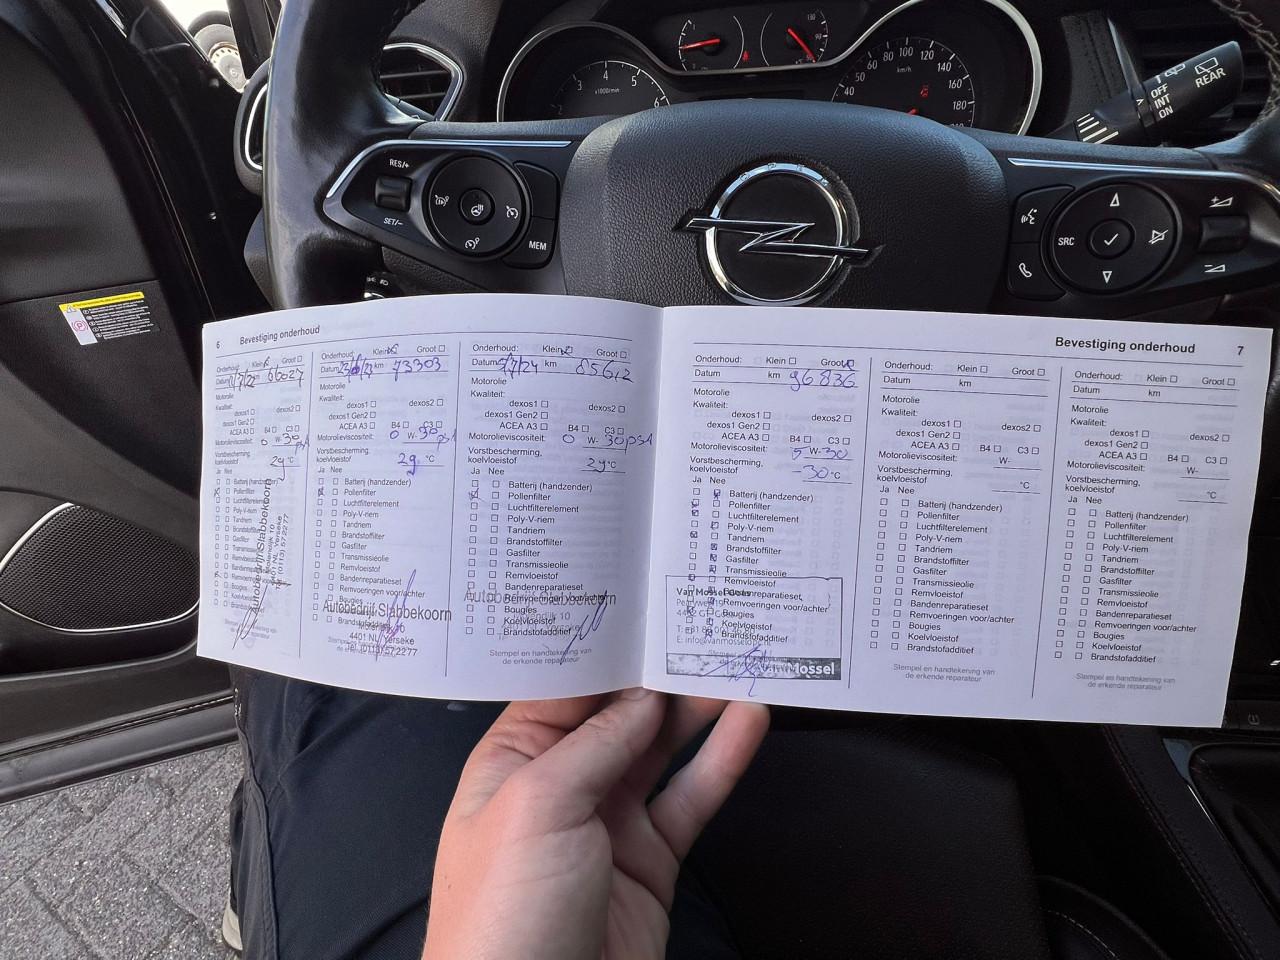 4 5
3 6
2
x1000/min
80 100 120
60 140
40 160
km/h 180
OFF
INT
ON
REAR
RES/+
SET/–
MEM
SRC
OPEL
6 Bevestiging onderhoud
Onderhoud: Klein Groot
Datum km 66027
Motorolie
Kwaliteit:
dexos1 dexos2
dexos1 Gen2
ACEA A3 B4 C3
Motorolieviscositeit: 0 W- 30
Vorstbescherming,
koelvloeistof 29 °C
Ja Nee
Batterij (handzender)
Pollenfilter
Luchtfilterelement
Poly-V-riem
Tandriem
Brandstoffilter
Gasfilter
Transmissieolie
Remvloeistof
Autobedrijf Slabbekoorn
Onderhoud: Klein Groot
Datum km 73303
Motorolie
Kwaliteit:
dexos1 dexos2
dexos1 Gen2
ACEA A3 B4 C3
Motorolieviscositeit: 0 W- 30
Vorstbescherming,
koelvloeistof 29 °C
Ja Nee
Batterij (handzender)
Pollenfilter
Luchtfilterelement
Poly-V-riem
Tandriem
Brandstoffilter
Gasfilter
Transmissieolie
Remvloeistof
Bandenreparatieset
Remvoeringen voor/achter
Bougies
Autobedrijf Slabbekoorn
4401 NL Yerseke
Tel. (0113) 572277
de erkende reparateur
Onderhoud: Klein Groot
Datum 5/7/24 km
Motorolie
Kwaliteit:
dexos1 dexos2
dexos1 Gen2
ACEA A3 B4 C3
Motorolieviscositeit: 0 W- 30 PSA
Vorstbescherming,
koelvloeistof 29 °C
Ja Nee
Batterij (handzender)
Pollenfilter
Luchtfilterelement
Poly-V-riem
Tandriem
Brandstoffilter
Gasfilter
Transmissieolie
Remvloeistof
Bandenreparatieset
Remvoeringen voor/achter
Autobedrijf Slabbekoorn
Bougies
Koelvloeistof
Brandstofadditief
Stempel en handtekening van
de erkende reparateur
Bevestiging onderhoud 7
Onderhoud: Klein Groot
Datum km 96836
Motorolie
Kwaliteit:
dexos1 dexos2
dexos1 Gen2
ACEA A3 B4 C3
Motorolieviscositeit: 5 W- 30
Vorstbescherming,
koelvloeistof -30 °C
Ja Nee
Batterij (handzender)
Pollenfilter
Luchtfilterelement
Poly-V-riem
Tandriem
Brandstoffilter
Gasfilter
Transmissieolie
Remvloeistof
Bandenreparatieset
Remvoeringen voor/achter
Bougies
Koelvloeistof
Brandstofadditief
Van Mossel
Onderhoud: Klein Groot
Datum km
Motorolie
Kwaliteit:
dexos1 dexos2
dexos1 Gen2
ACEA A3 B4 C3
Motorolieviscositeit: W-
Vorstbescherming,
koelvloeistof °C
Ja Nee
Batterij (handzender)
Pollenfilter
Luchtfilterelement
Poly-V-riem
Tandriem
Brandstoffilter
Gasfilter
Transmissieolie
Remvloeistof
Bandenreparatieset
Remvoeringen voor/achter
Bougies
Koelvloeistof
Brandstofadditief
Stempel en handtekening van
de erkende reparateur
Onderhoud: Klein Groot
Datum km
Motorolie
Kwaliteit:
dexos1 dexos2
dexos1 Gen2
ACEA A3 B4 C3
Motorolieviscositeit: W-
Vorstbescherming,
koelvloeistof °C
Ja Nee
Batterij (handzender)
Pollenfilter
Luchtfilterelement
Poly-V-riem
Tandriem
Brandstoffilter
Gasfilter
Transmissieolie
Remvloeistof
Bandenreparatieset
Remvoeringen voor/achter
Bougies
Koelvloeistof
Brandstofadditief
Stempel en handtekening van
de erkende reparateur